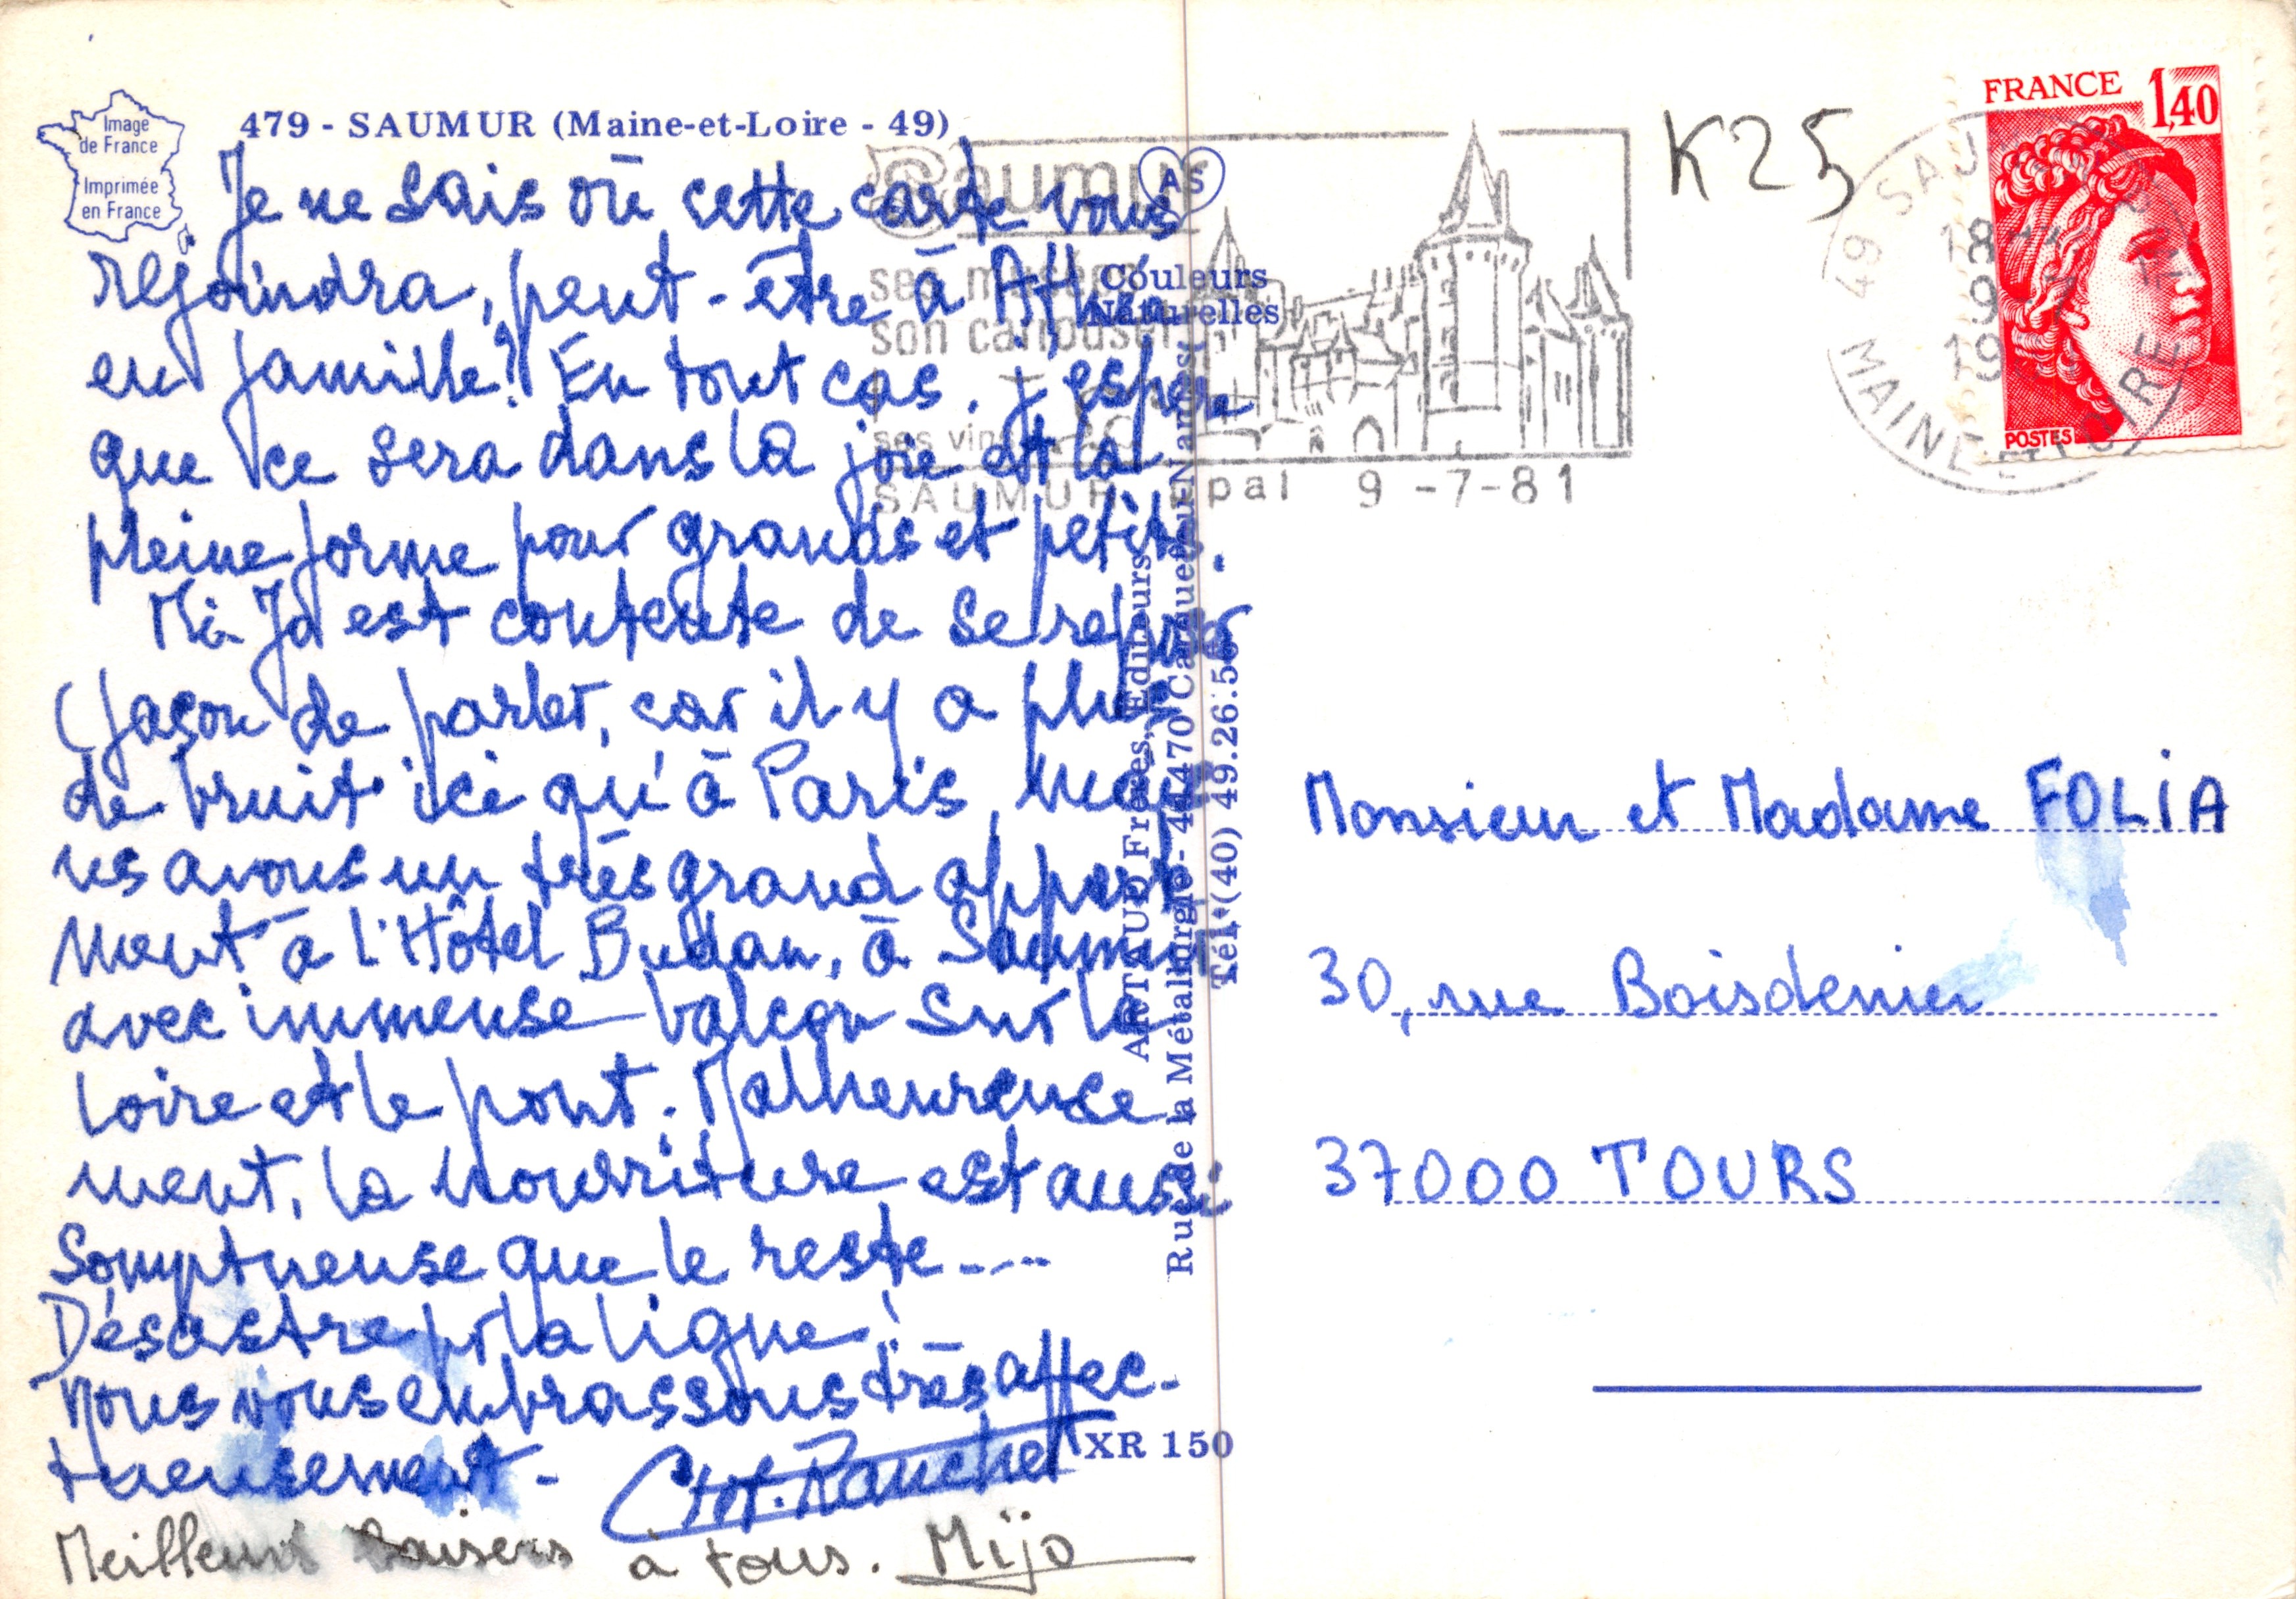 Image
de France
Imprimée
en France
479 - SAUMUR (Maine-et-Loire - 49)
Je ne sais où cette carte vous
rejoindra, peut-être à
en famille? En tout cas, j'espère
que ce sera dans la joie et la
pleine forme pour grands et petits.
Mi-Jo est contente de se reposer
(façon de parler, car il y a plus
de bruit ici qu'à Paris, mais
ns avons un très grand apparte
ment à l'Hôtel Budan, à Saumur
avec immense balcon sur la
Loire et le pont. Malheureuse
ment, la nourriture est aussi
somptueuse que le reste....
Désastre pr la ligne!
Nous vous embrassons très affec-
tueusement-
Meilleurs baisers à tous. Mijo
Saumur
ses musées
son carrousel
ses vins
SAUMUR ppal 9-7-81
AS
Couleurs
Naturelles
ARTAUD Frères, Editeurs
Rue de la Métallurgie - 44470 Carquefou-Nantes
Tél. (40) 49.26.5
XR 150
K25
FRANCE 1,40
POSTES
49 SAUMUR
18
9
19
MAINE ET LOIRE
Monsieur et Madame FOLIA
30, rue Boisdenier
37000 TOURS